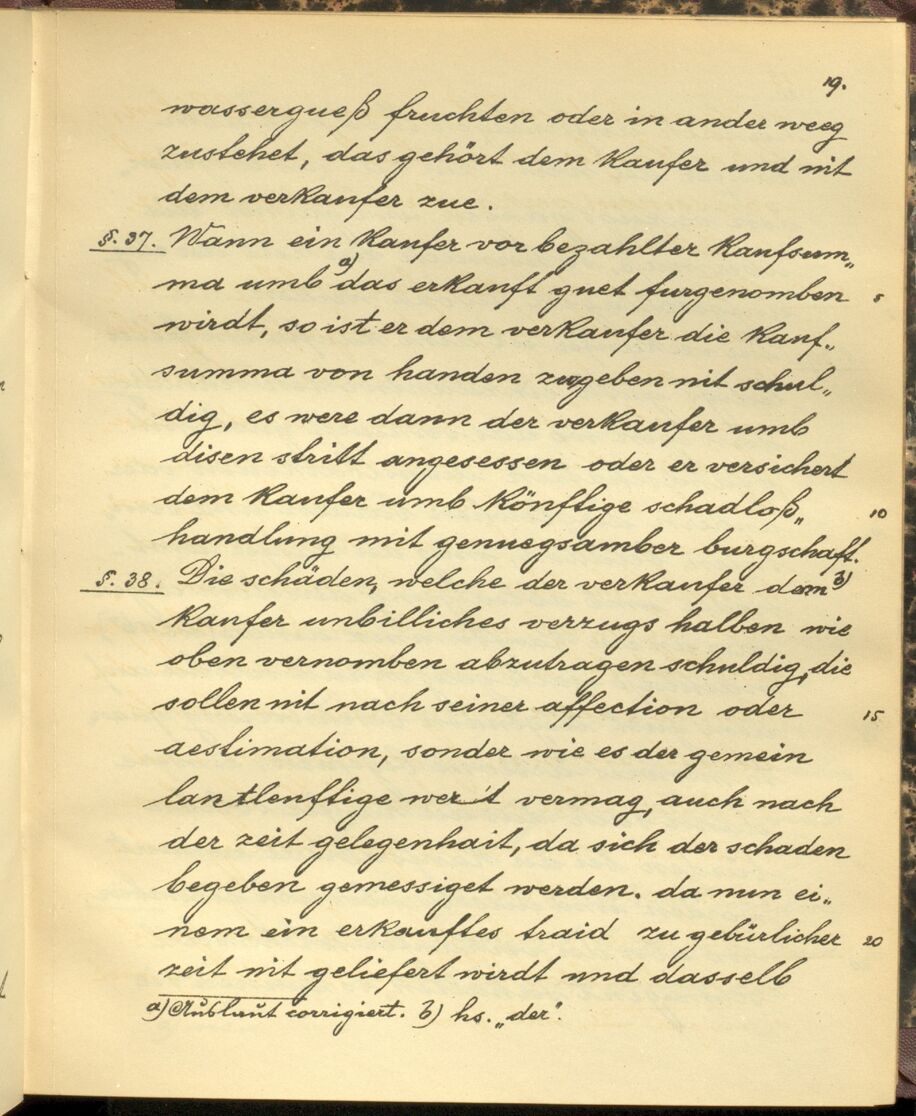 19.
wassergueß fruchten oder in ander weeg
zustehet, das gehört dem kaufer und nit
dem verkaufer zue.
§. 37. Wann ein kaufer vor bezahlter kaufsum„
ma umb a) das erkauft guet furgenomben 5
wirdt, so ist er dem verkaufer die kauf„
summa von handen zugeben nit schul„
dig, es were dann der verkaufer umb
disen stritt angesessen oder er versichert
dem kaufer umb könftige schadloß„ 10
handlung mit genuegsamber burgschaft.
§. 38. Die schäden, welche der verkaufer dem b)
kaufer unbilliches verzugs halben wie
oben vernomben abzutragen schuldig, die
sollen nit nach seiner affection oder 15
aestimation, sonder wie es der gemein
lantleuftige wert vermag, auch nach
der zeit gelegenhait, da sich der schaden
begeben gemessiget werden. da nun ei„
nem ein erkauftes traid zu gebürlicher 20
zeit nit geliefert wirdt und dasselb
a) Auslaut corrigiert. b) hs. „der“.